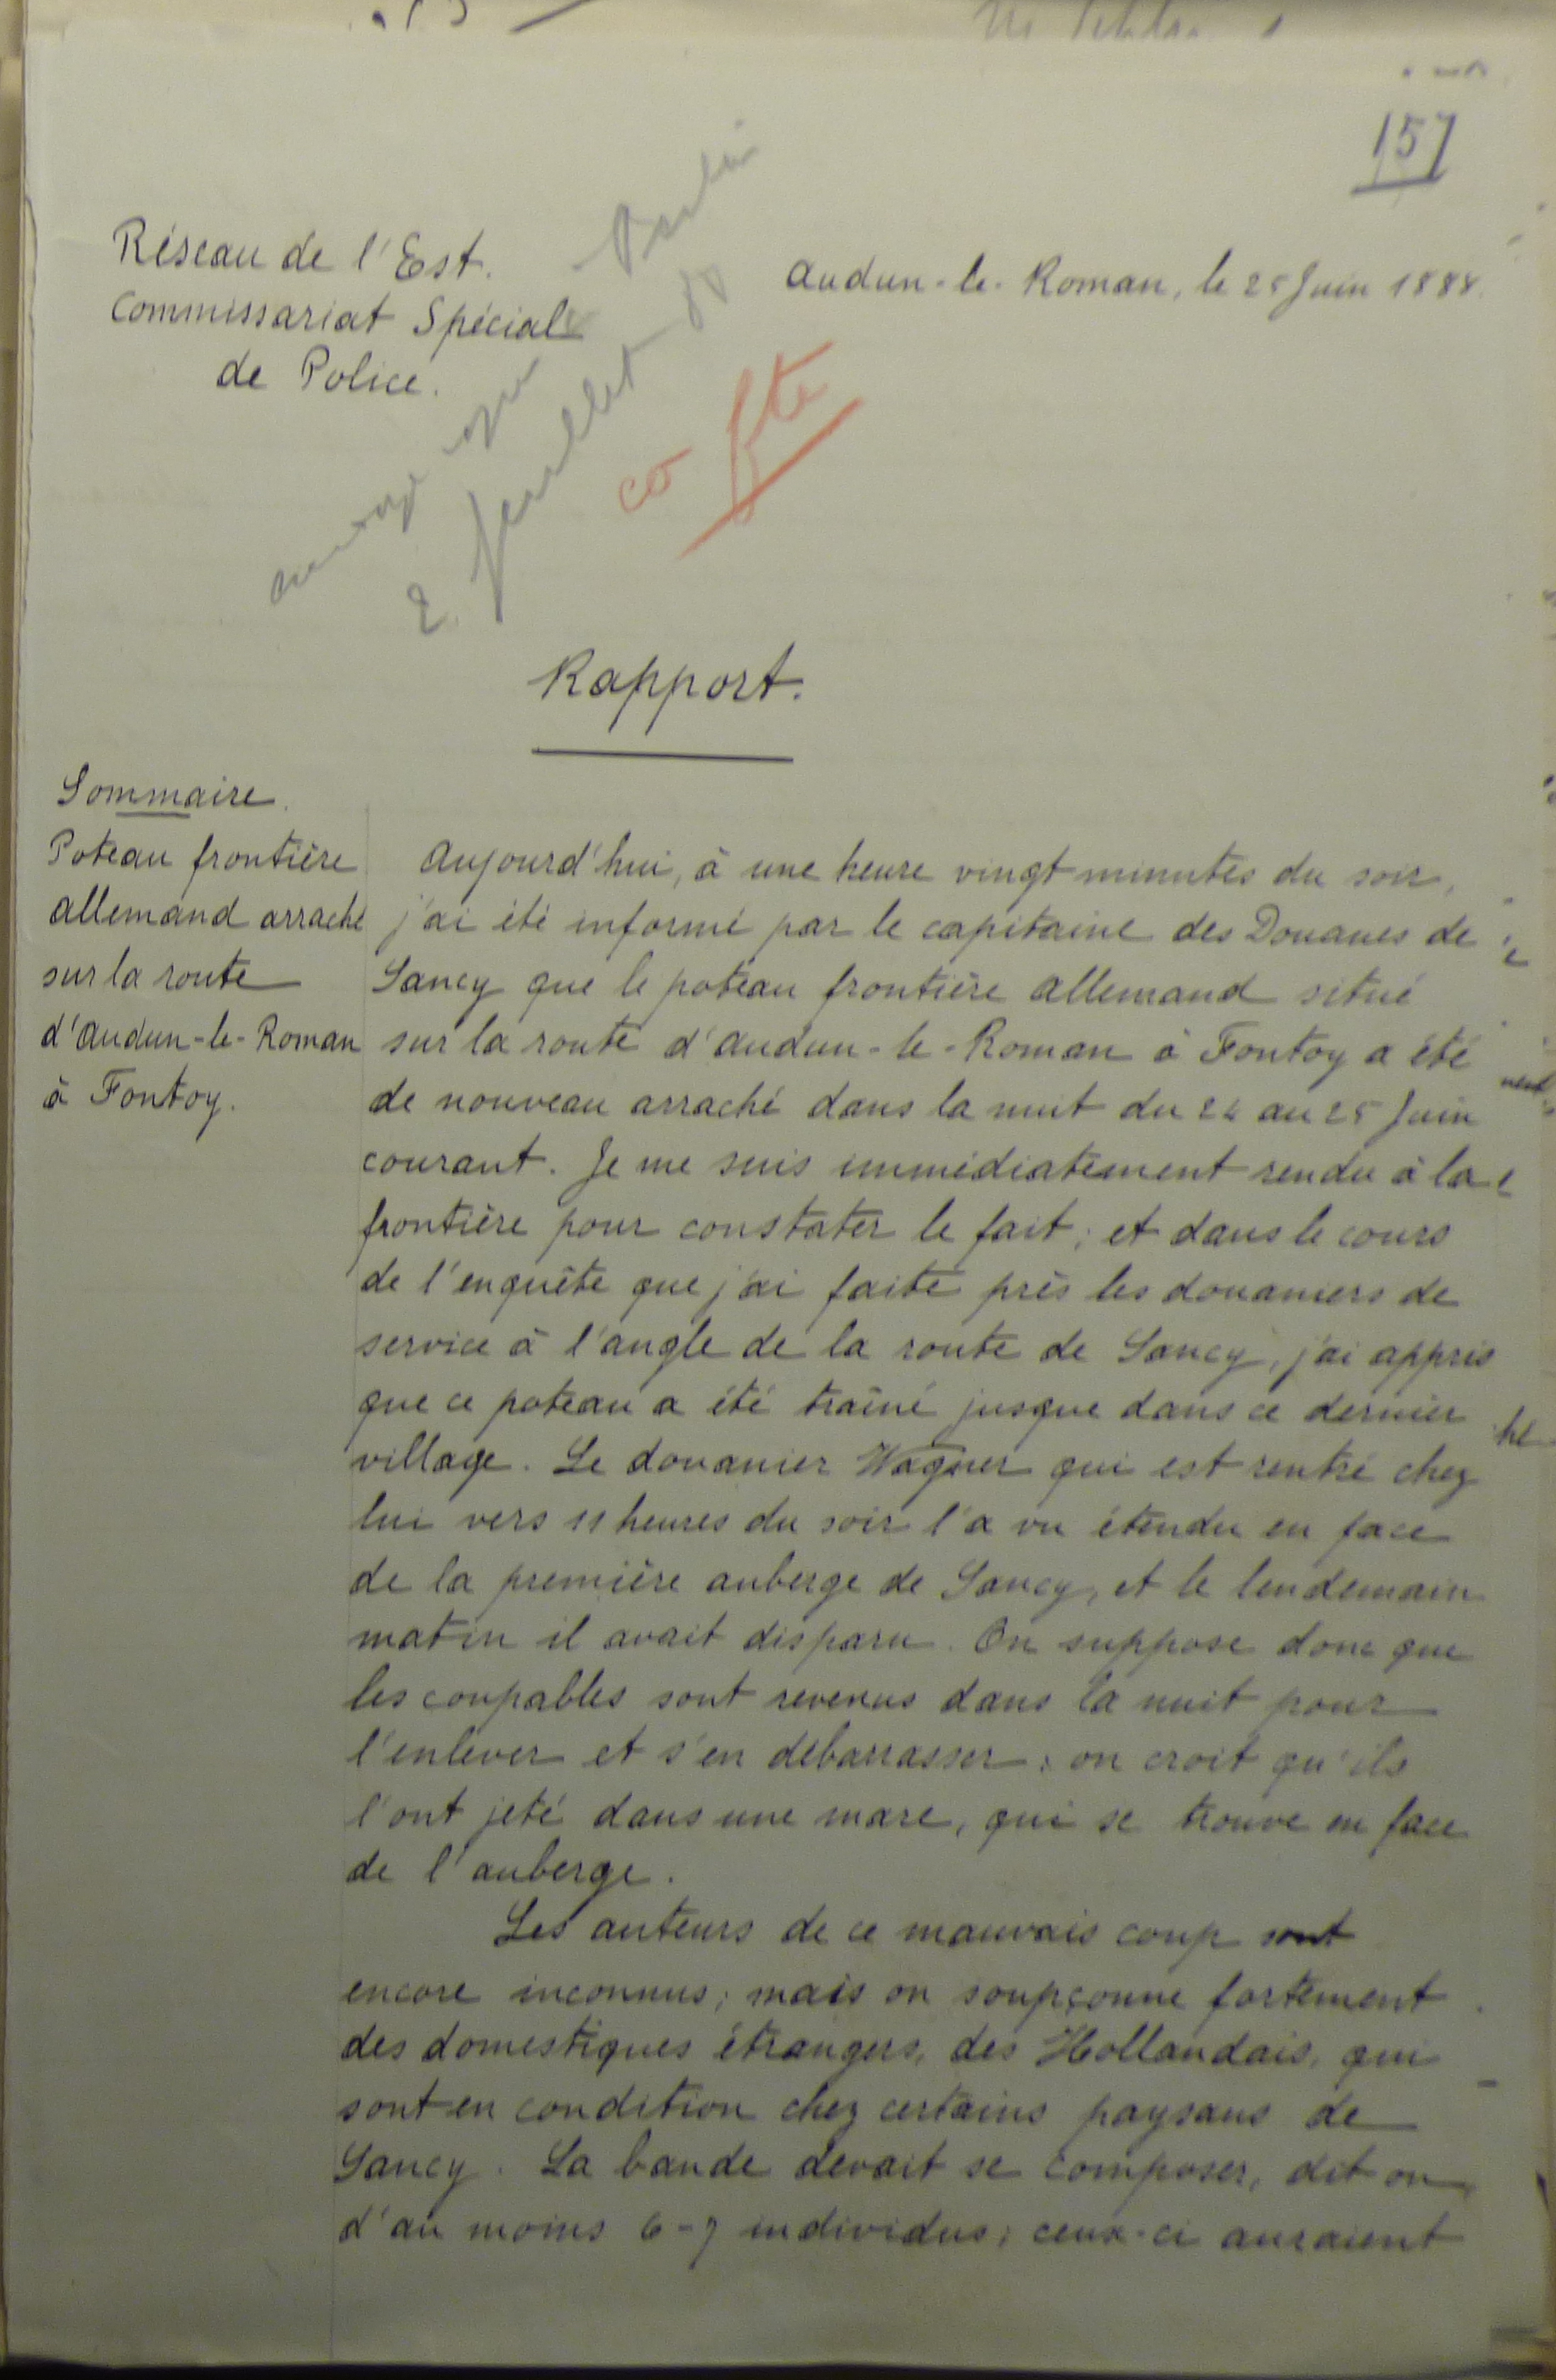 157
Réseau de l'Est.
Commissariat Spécial
de Police.
Audun-le-Roman, le 25 Juin 1888.
Rapport.
Sommaire.
Poteau frontière
allemand arraché
sur la route
d'Audun-le-Roman
à Fontoy.
Aujourd'hui, à une heure vingt minutes du soir,
j'ai été informé par le capitaine des Douanes de
Sancy que le poteau frontière allemand situé
sur la route d'Audun-le-Roman à Fontoy a été
de nouveau arraché dans la nuit du 24 au 25 Juin
courant. Je me suis immédiatement rendu à la
frontière pour constater le fait; et dans le cours
de l'enquête que j'ai faite près les douaniers de
service à l'angle de la route de Sancy, j'ai appris
que ce poteau a été traîné jusque dans ce dernier
village. Le douanier Wagner qui est rentré chez
lui vers 11 heures du soir l'a vu étendu en face
de la première auberge de Sancy, et le lendemain
matin il avait disparu. On suppose donc que
les coupables sont revenus dans la nuit pour
l'enlever et s'en débarrasser; on croit qu'ils
l'ont jeté dans une mare, qui se trouve en face
de l'auberge.
Les auteurs de ce mauvais coup sont
encore inconnus; mais on soupçonne fortement
des domestiques étrangers, des Hollandais, qui
sont en condition chez certains paysans de
Sancy. La bande devait se composer, dit on,
d'au moins 6-7 individus; ceux-ci auraient